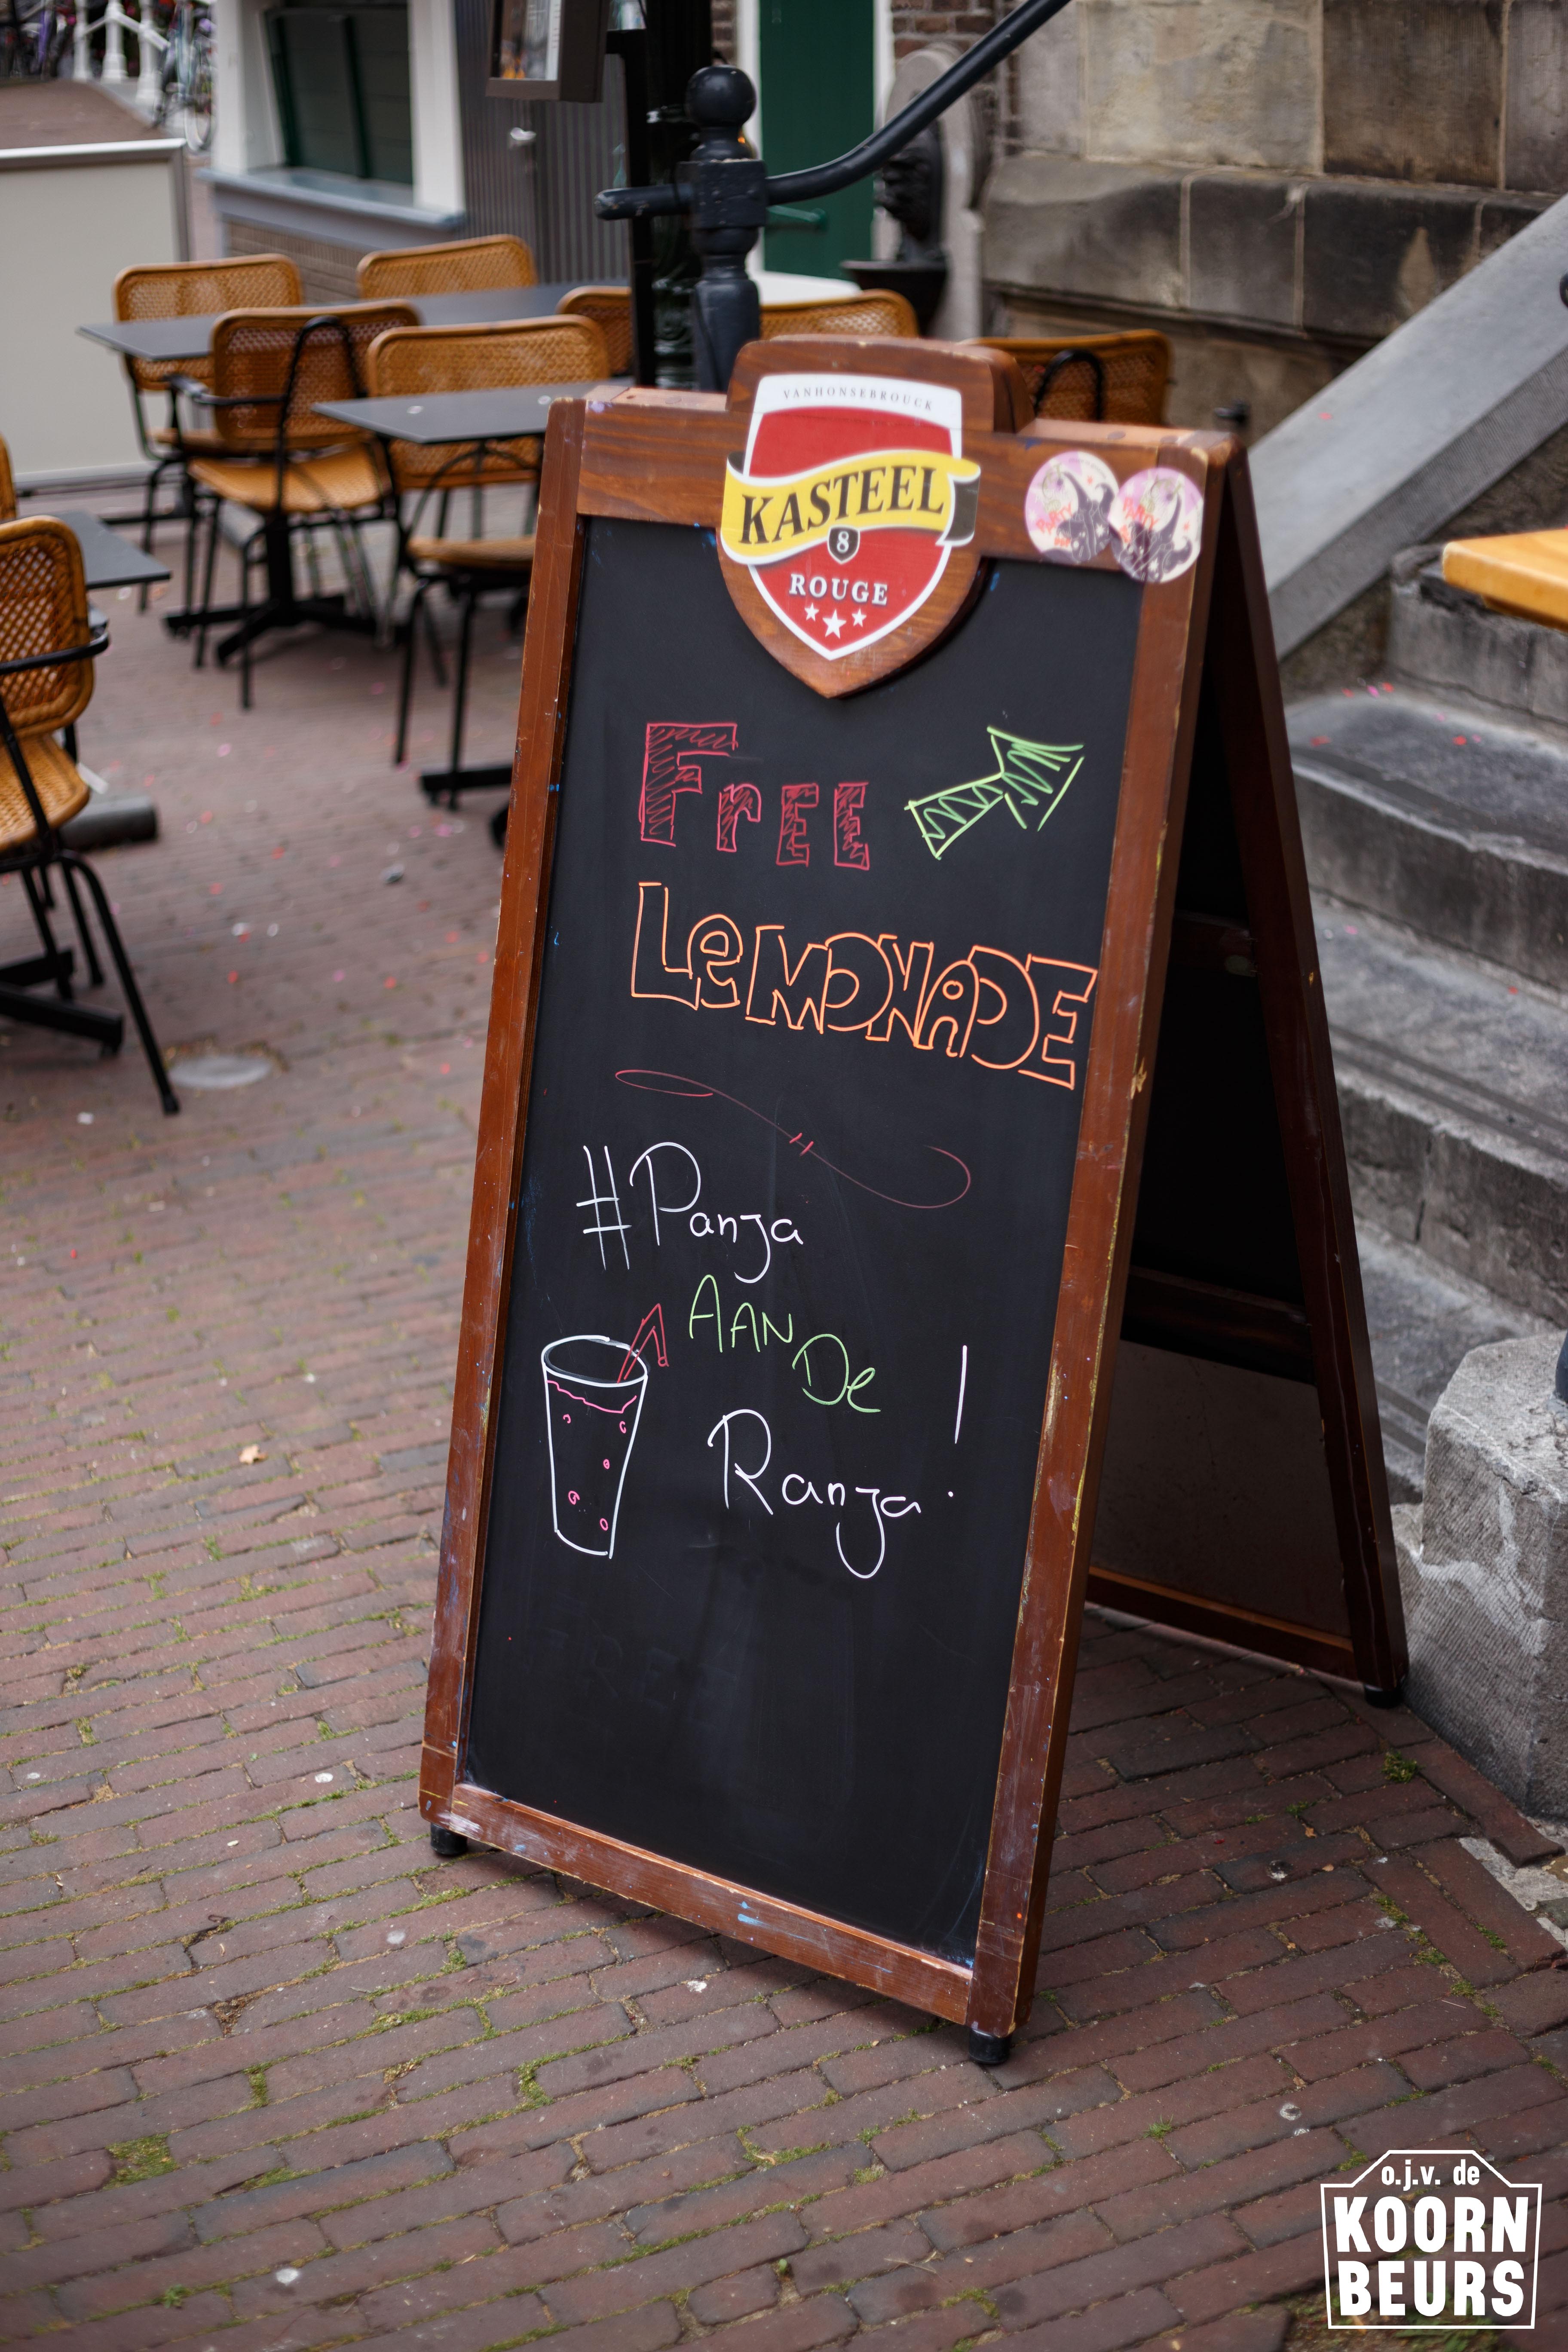 VANHONSEBROUCK
KASTEEL
8
ROUGE
PARTY
PARTY
FrEE
LeMONADE
#Panja
AAN De
Ranja!
o.j.v. de
KOORN
BEURS